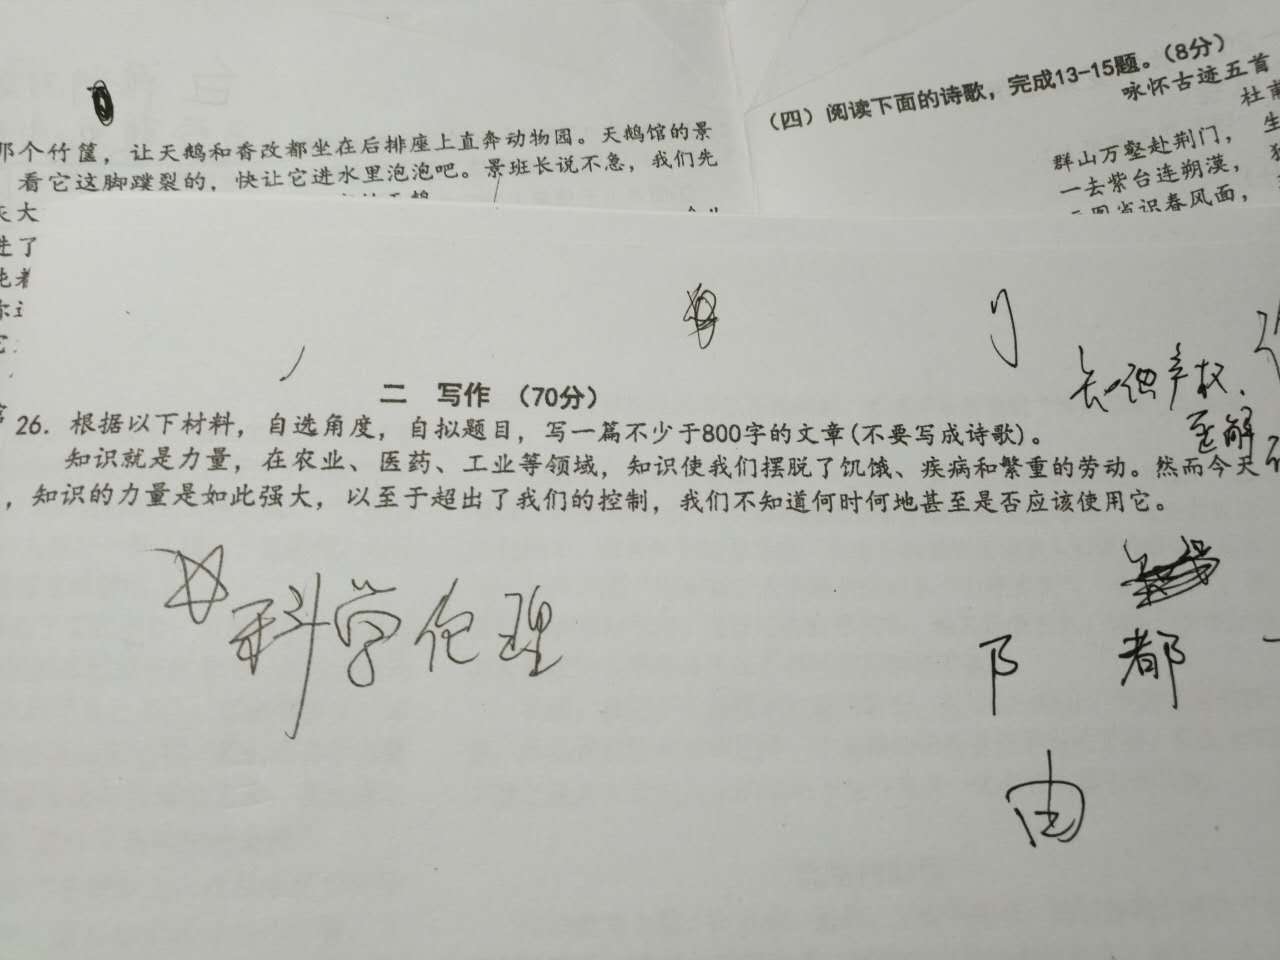 那个竹筐，让天鹅和香改都坐在后排座上直奔动物园。天鹅馆的景
看它这脚蹼裂的，快让它进水里泡泡吧。景班长说不急，我们先
(四) 阅读下面的诗歌，完成13-15题。(8分)
咏怀古迹五首
杜甫
群山万壑赴荆门，
一去紫台连朔漠，
画图省识春风面，
二 写作 (70分)
26. 根据以下材料，自选角度，自拟题目，写一篇不少于800字的文章(不要写成诗歌)。
知识就是力量，在农业、医药、工业等领域，知识使我们摆脱了饥饿、疾病和繁重的劳动。然而今天
，知识的力量是如此强大，以至于超出了我们的控制，我们不知道何时何地甚至是否应该使用它。
产权、
科学伦理
阝 都
由